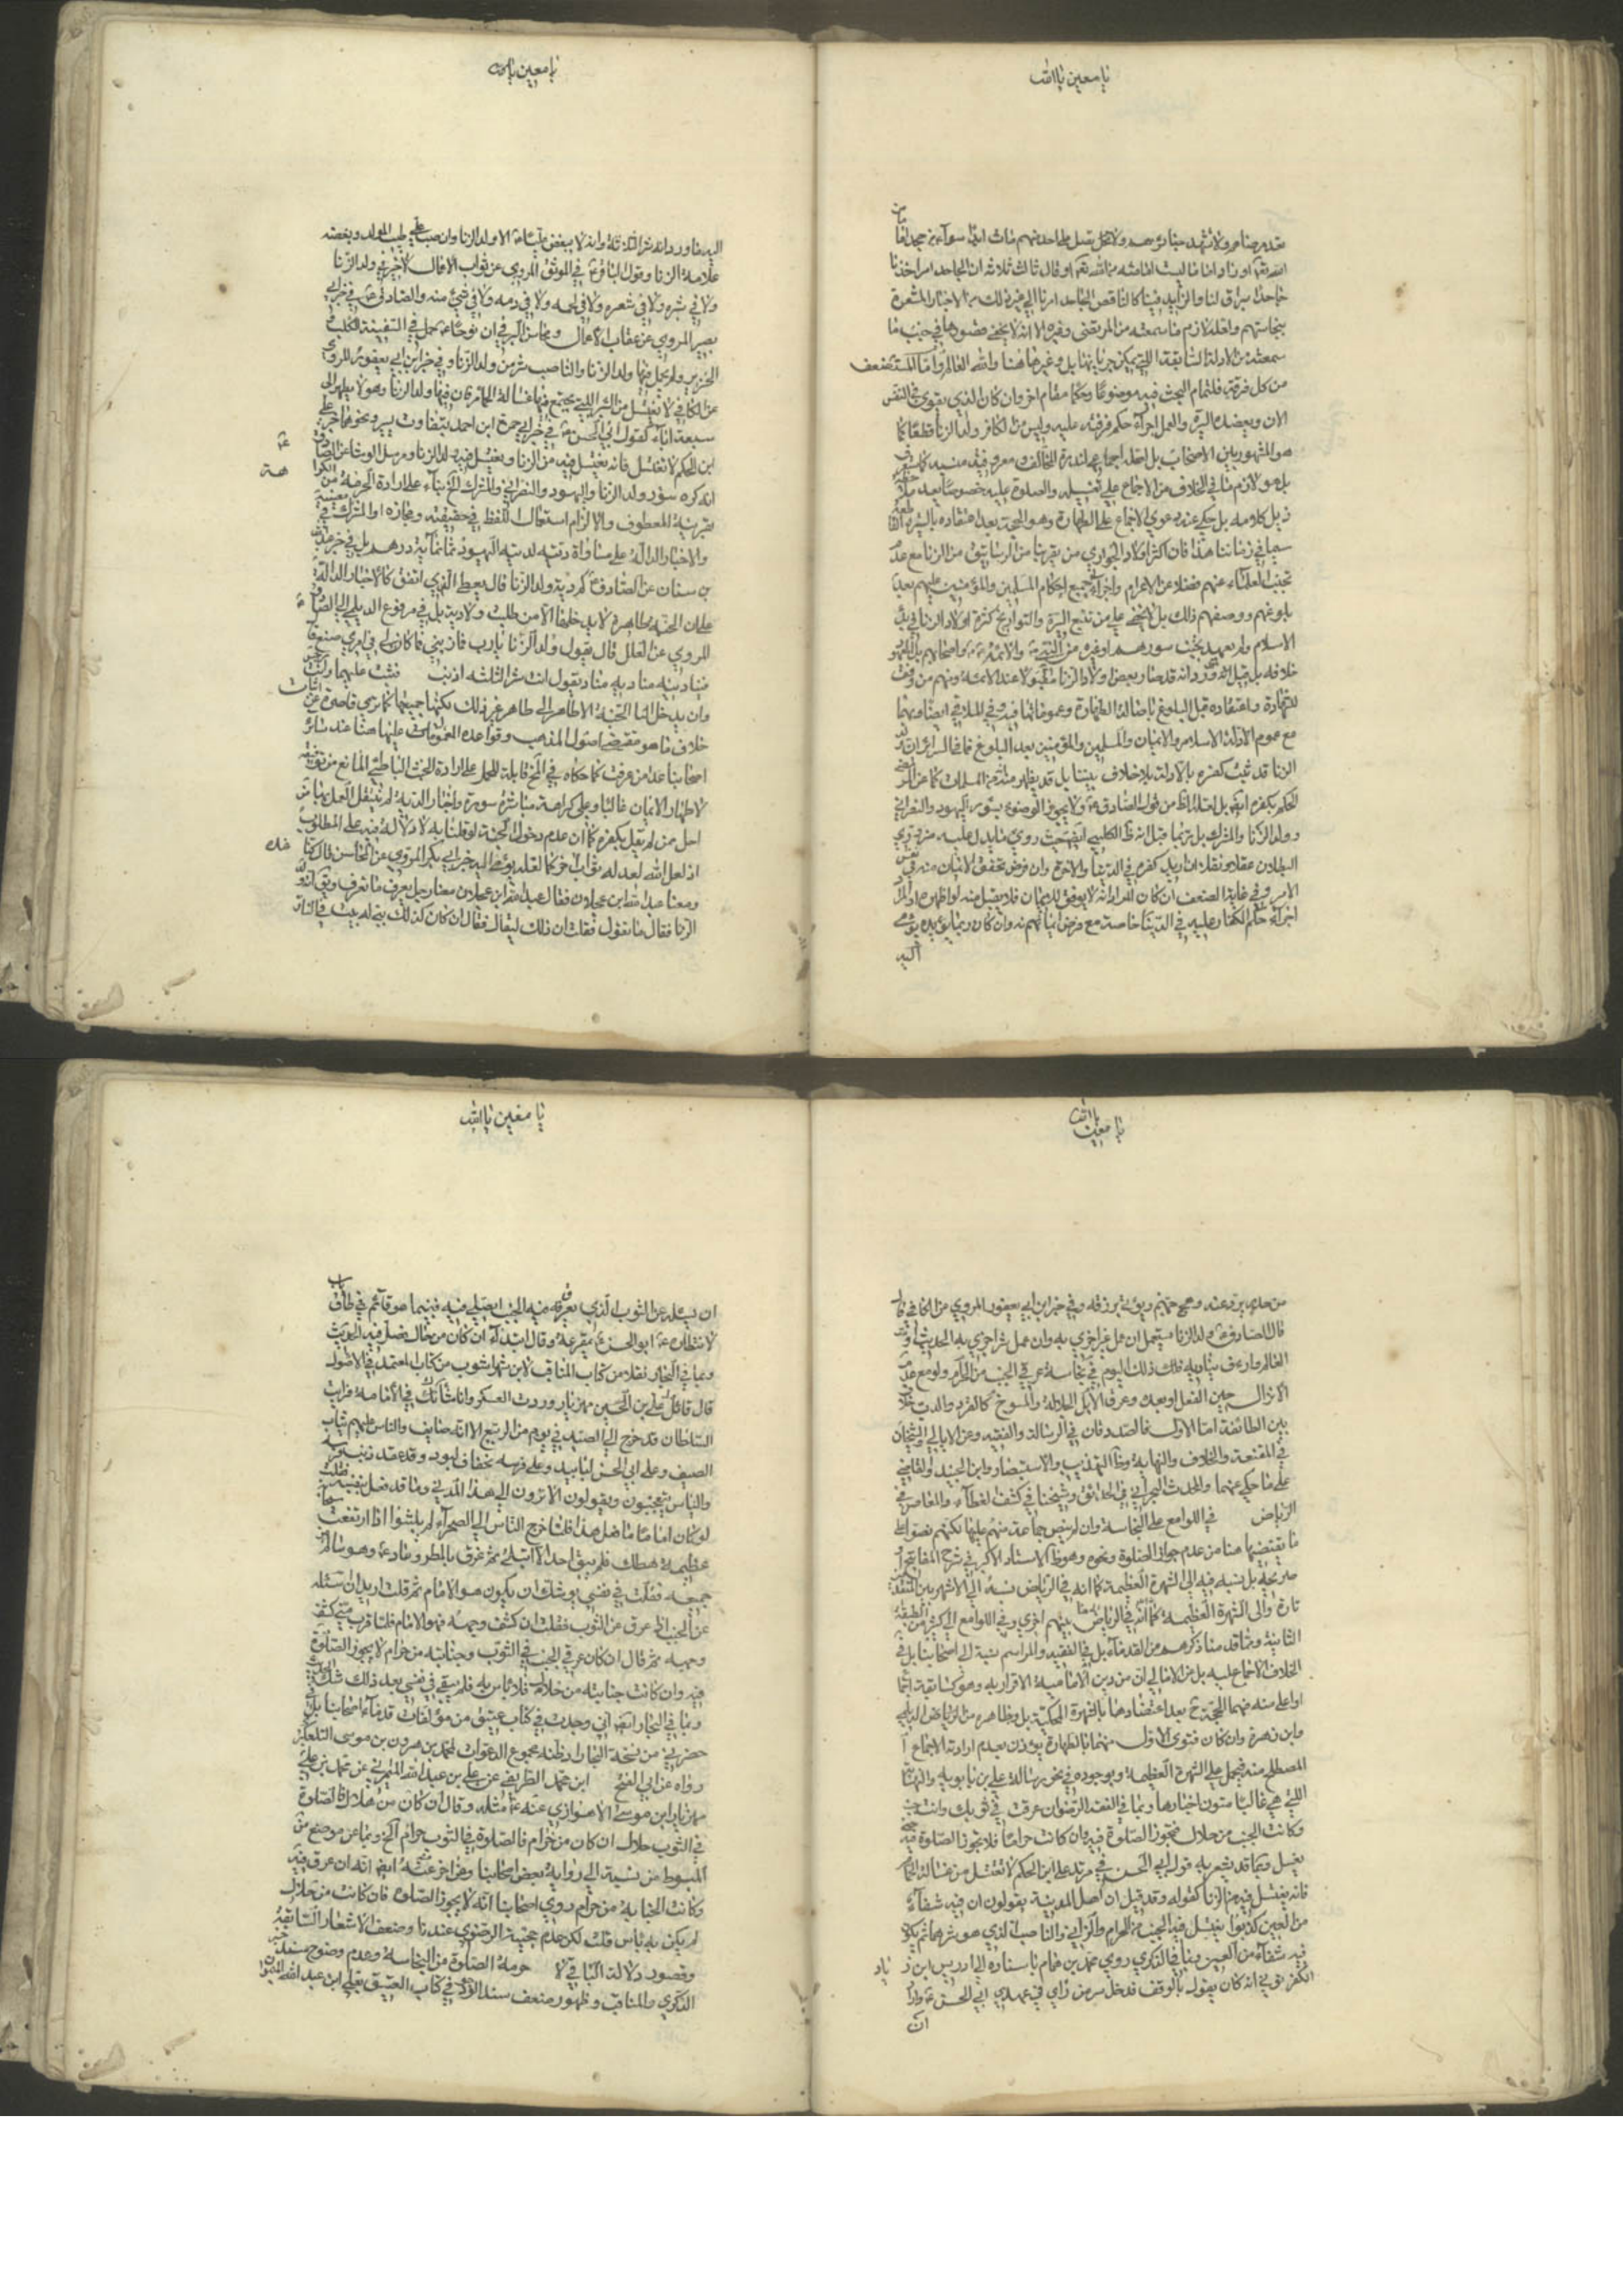 يا معين يا الله
بعد مرضاهم ولا تشهد جنائزهم ولا تصل على احد منهم مات ابدا سواء من جحد اماما من
الله تعالى او زاد اماما ليست امامته من الله تعالى او قال ثالث ثلاثة ان الجاحد امر اخرنا
جاحد امر اولنا والزايد فينا كالناقص الجاحد امرنا الى غير ذلك من الاخبار المشعرة
بنجاستهم ولعله لازم ما سمعته من المرتضى وغيره الا انه لا يخفى قصورها في جنب ما
سمعته من الادلة السابقة التي يمكن جريانها بل وغيرها هنا والله العالم واما المستضعف
من كل فرقة فلتمام البحث فيه موضوعا وحكما مقام اخر وان كان الذي يقوى في النفس
الان ويعضده السيرة والعمل اجراء حكم فرقته عليه وليس من الكافر ولد الزنا قطعا كما
هو المشهور بين الاصحاب بل لعله اجماعي لندرة المخالف ومعروفية نسبه
بل هو لازم ما في الخلاف من الاجماع على تغسيله والصلوة عليه خصوصا بعد
ذيل كلامه بل حكي عنه دعوى الاجماع على الطهارة وهو الحجة بعد اعتضاده بالسيرة
سيما في زماننا هذا فان اكثر اولاد الجواري من يقربنا من الرساتيق من الزنا مع عدم
تجنب العلماء عنهم فضلا عن الاعوام واجراء جميع احكام المسلمين والمؤمنين عليهم بعد
بلوغهم ووصفهم ذلك بل لا يخفى على من تتبع السيرة والتواريخ كثرة اولاد الزنا في بدو
الاسلام ولم يعهد تجنب سؤرهم او غيره من النبي والائمة واصحابهم بل المعهود
خلافه بل قيل انه قد صار بعض اولاد الزنا مقبولا عند الائمة ومنهم من وفق
للشهادة واعتقاده قبل البلوغ باصالة الطهارة وعموماتها فيه وفي الملاقي ايضا وبهما
مع عموم الادلة الاسلام والايمان والمسلمين والمؤمنين بعد البلوغ فما في السرائر ان ولد
الزنا قد ثبت كفره بالادلة بلا خلاف بيننا بل قد يظهر منه انه من المسلمات كما عن المرتضى
الحكم بكفره ايضا بل لعله الظاهر من قول الصادق ولا يجوز الوضوء بسؤر اليهود والنصراني
وولد الزنا والمشرك بل ربما قيل انه ظاهر الكليني ايضا حيث روى ما يدل عليه من دون
البطلان عقلا ونقلا ان اريد كفره في الدنيا والاخرة وان فرض تحقق الايمان منه في نفس
الامر وفي غاية الضعف ان كان المراد انه لا يوفق للايمان فلا يقبل منه لو اظهره او المراد
اجراء حكم الكفار عليه في الدنيا خاصة مع فرض ايمانه منه وان كان ربما يؤيده يومي
اليه
يا معين يا الله
اليه ما ورد انه شر الثلاثة وانه لا يبغض عليا الا ولد الزنا وان حب علي طيب الولد وبغضه
علامة الزنا وقول الباقر في الموثق المروي عن ثواب الاعمال لا خير في ولد الزنا
ولا في بشره ولا في شعره ولا في لحمه ولا في دمه ولا في شيء منه والصادق في خبر ابي
بصير المروي عن عقاب الاعمال ومحاسن البرقي ان نوحا حمل في السفينة الكلب و
الخنزير ولم يحمل فيها ولد الزنا والناصب شر من ولد الزنا وفي خبر ابن ابي يعفور المروي
عن الكافي لا تغتسل من البئر التي يجتمع فيها غسالة الحمام فان فيها ولد الزنا وهو لا يطهر الى
سبعة اباء كقول ابي الحسن في خبر حمزة ابن احمد بتفاوت يسير ونحوهما خبر علي
ابن الحكم لا تغتسل فانه يغتسل فيه من الزنا ويغتسل فيه ولد الزنا ومرسل الوشا عن الصادق
انه كره سؤر ولد الزنا واليهود والنصراني والمشرك الخ بناء على ارادة الحرمة من الكراهة
بقرينة المعطوف والا لزم استعمال اللفظ في حقيقته ومجازه او المشترك في معنييه
والاخبار الدالة على مساواة ديته لدية اليهود ثمانمائة درهم بل في خبر عبد الله
بن سنان عن الصادق كم دية ولد الزنا قال يعطى الذي انفق كالاخبار الدالة
على ان الجنة طاهرة لا يدخلها الا من طابت ولادته بل في مرفوع الديلمي الى الصادق
المروي عن العلل قال يقول ولد الزنا يا رب فما ذنبي فما كان لي في امري صنع قال
فيناديه مناد يقول انت شر الثلثة اذنب فنشأت عليهما وانت رجس
ولن يدخل الجنة الا طاهر الى طاهر غير ذلك لكنها جميعها كما ترى قاصرة عن اثبات
خلاف ما هو مقتضى اصول المذهب وقواعده المعمول عليها هنا عند سائر
اصحابنا عدا من عرفت كما حكاه في الخ قابلة للحمل على ارادة الخبث الباطني المانع من توفيقه
لاظهار الايمان غالبا وعلى كراهة مباشرة سؤره واخبار الدية لم ينقل العمل بها من
احد من لم يقل بكفره كما ان عدم دخول الجنة لو قلنا به لا دلالة فيه على المطلوب
اذ لعل الله اعد له ثوابا اخر كما لعله يؤمي اليه خبر ابي بكر المروي عن المحاسن قال كنا عنده
ومعنا عبد الله ابن عجلان فقال عبد الله ابن عجلان معنا رجل يعرف ما نعرف ويق انه ولد
الزنا فقال ما تقول فقلت ان ذلك ليقال فقال ان كان كذلك بني له بيت في النار
يا الله يا معين
من صدر يرد عنه وهج جهنم ويؤتى برزقه وفي خبر ابن ابي يعفور المروي عن الكافي قال
قال الصادق ولد الزنا يستعمل ان عمل خيرا جزي به وان عمل شرا جزي به الحديث والله
العالم وارعوى بنا به ذلك اليوم في نجاسة عرق الجنب من الحرام ولو مع عدم
الانزال حين الفعل او بعده وعرق الابل الجلالة والمسوخ كالقرد والدب خلاف
بين الطائفة اما الاول فالصدوقان في الرسالة والفقيه وعن الامالي والشيخان
في المقنعة والخلاف والنهاية وظاهر التهذيب والاستبصار وابن الجنيد والقاضي
على ما حكي عنهما والمحدث البحراني في الحدائق وشيخنا في كشف الغطاء والمعاصر في
الرياض في اللوامع على النجاسة وان لم ينص جماعة منهم عليها لكنهم نصوا على
ما يقتضيها هنا من عدم جواز الصلوة ونحوه وهو ظاهر الاستاد الاكبر في شرح المفاتيح او
صريحه بل نسبه فيه الى الشهرة العظيمة كما انه في الرياض نسبه الى الاشهر بين المتقدمين
تارة والى الشهرة العظيمة كما انه في الرياض بينهم اخرى وفي اللوامع الى اكثر الطبقة
الثانية وبما قد مناذكرهم من القدماء بل في الفقيه والمراسم نسبته الى اصحابنا بل في
الخلاف الاجماع عليه بل عن الامالي ان من دين الامامية الاقرار به وهو كسابقه اما
او اعلى منه فهما الحجة ح بعد اعتضادهما بالشهرة المحكية بل وظاهره من الرياض الديلمي
وابن زهرة وان كان فتوى الاول منهما بالطهارة يؤذن بعدم ارادة الاجماع
المصطلح منه فيحمل على الشهرة العظيمة وبوجوده في نحو رسالة علي بن بابويه والنهاية
التي هي غالبا متون اخبارها وبما في الفقه الرضوي ان عرقت في ثوبك وانت جنب
وكانت الجنب من حلال فتجوز الصلوة فيه وان كانت حراما فلا تجوز الصلوة فيه حتى
يغسل وبما قد يشعر به قول ابي الحسن في مرسلة علي ابن الحكم لا تغتسل من غسالة الحمام
فانه يغتسل فيه من الزنا كقوله وقد قيل ان اهل المدينة يقولون ان فيه شفاء
من العين كذبوا يغتسل فيه الجنب من الحرام والزاني والناصب الذي هو شرهما ثم يكون
فيه شفاء من العين وبما في الذكرى روى محمد بن همام باسناده الى ادريس ابن زياد
الكفرتوثي انه كان يقول بالوقف فدخل سر من رأى في عهد ابي الحسن واراد
ان
يا معين يا الله
ان يسئله عن الثوب الذي يعرق فيه الجنب ايصلى فيه فبينما هو قائم في طاق باب
لانتظاره ابو الحسن بمقرعة وقال ابتداء ان كان من حلال فصل فيه الحديث
وبما في البحار نقلا من كتاب المناقب لابن شهراشوب من كتاب المعتمد في الاصول
قال قال علي بن الحسين مهزيار وردت العسكر وانا شاك في الامامة فرايت
السلطان قد خرج الى الصيد في يوم من الربيع الا انه صايف والناس عليهم ثياب
الصيف وعلى ابي الحسن لبابيد وعلى فرسه تجفاف لبود وقد عقد ذنب فرسه
والناس يتعجبون ويقولون الا ترون الى هذا المدني وما قد فعل بنفسه فقلت
لو كان اماما ما فعل هذا فلما خرج الناس الى الصحراء لم يلبثوا اذا ارتفعت سحابة
عظيمة هطلت فلم يبق احد الا ابتل ثم غرق بالمطر وعاد وهو سالم من
جميعه فقلت في نفسي يوشك ان يكون هو الامام ثم قلت اريد ان اسئله
عن الجنب اذا عرق عن الثوب فقلت ان كشف وجهه فهو الامام فلما قرب مني كشف
وجهه ثم قال ان كان عرق الجنب في الثوب وجنابته من حرام لا يجوز الصلوة
فيه وان كانت جنابته من حلال فلا باس به فلم يبق في نفسي بعد ذلك شك الحديث
وبما في البحار ايضا اني وجدت في كتاب عتيق من مؤلفات قدماء اصحابنا بل في
حضرني من نسخة البحار اظنه مجموع الدعوات لمحمد بن هرون بن موسى التلعكبري
رواه عن ابي الفتح ابن محمد الطريفي عن علي بن عبد الله الميمري عن محمد بن علي
مهزيار ابن موسى الاهوازي عنه مثله وقال ان كان من حلال فالصلوة
في الثوب حلال ان كان من حرام فالصلوة في الثوب حرام الخ وبما عن موضع من
المبسوط من نسبته الى رواية بعض اصحابنا وفي اخر عنه ايضا انه ان عرق فيه
وكانت الجنابة من حرام روى اصحابنا انه لا يجوز الصلوة فان كانت من حلال
لم يكن به باس قلت لكن عدم حجية الرضوي عندنا وضعف الاشعار السابقة
وقصور دلالة الباقي لا حرمة الصلوة من النجاسة وعدم وضوح سند خبر
الذكرى والمناقب وظهور ضعف سند المروي في كتاب العتيق بعلي ابن عبد الله